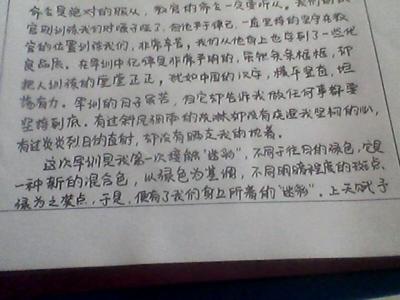 命令是绝对的服从，教官的命令一定要听从。我们的教
官别训练我们对嗓子哑了，但他严于律己，一直坚持的坚守在教
官的位置训练我们，非常辛苦，我们从他身上也学到了一些优
良品质。在军训中纪律是非常严明的，条条框框，却
把人训练的堂堂正正，犹如中国的汉字，横平竖直，坦
荡有力。军训的日子虽苦，但它却告诉我做任何事都要
坚持到底。有过斜风细雨的洗淋却没有浇退我坚构的心，
有过炎炎烈日的直射，却没有晒走我的执着。
这次军训是我第一次接触“迷彩”，不同于往日的绿色，它是
一种新的混合色，以绿色为基调，不同明暗程度的斑点、
绿为之装点，于是，便有了我们身上所着的“迷彩”。上天赋予